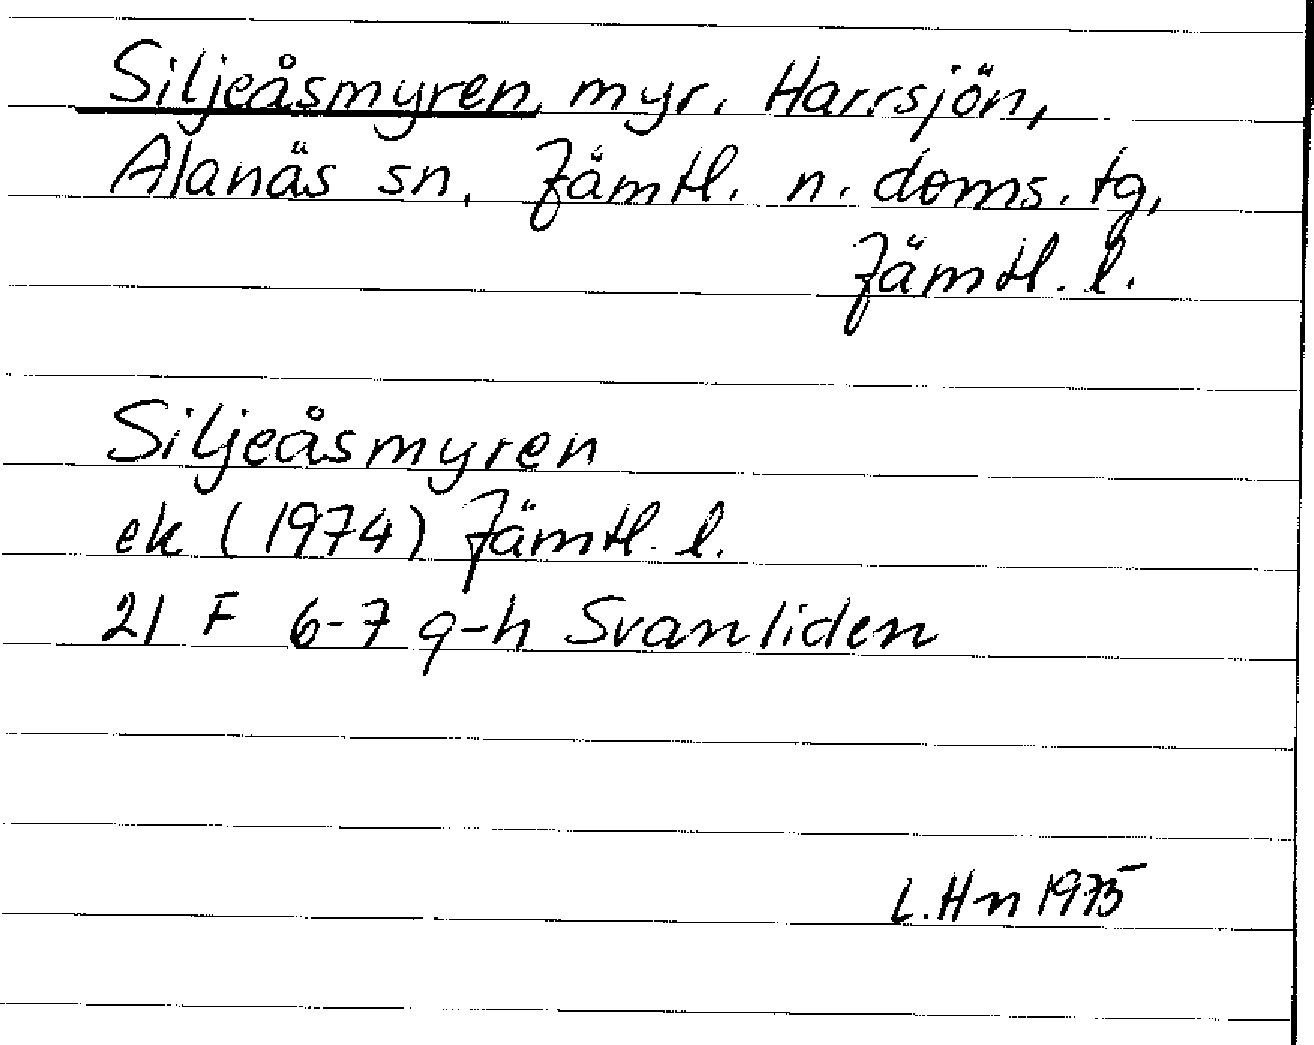 Siljeåsmyren, myr. Harrsjön,
Alanäs sn, Jämtl. n. doms. tg,
Jämtl. l.
Siljeåsmyren
ek (1974) Jämtl. l.
21 F 6-7 g-h Svanliden
L. Hn 1975